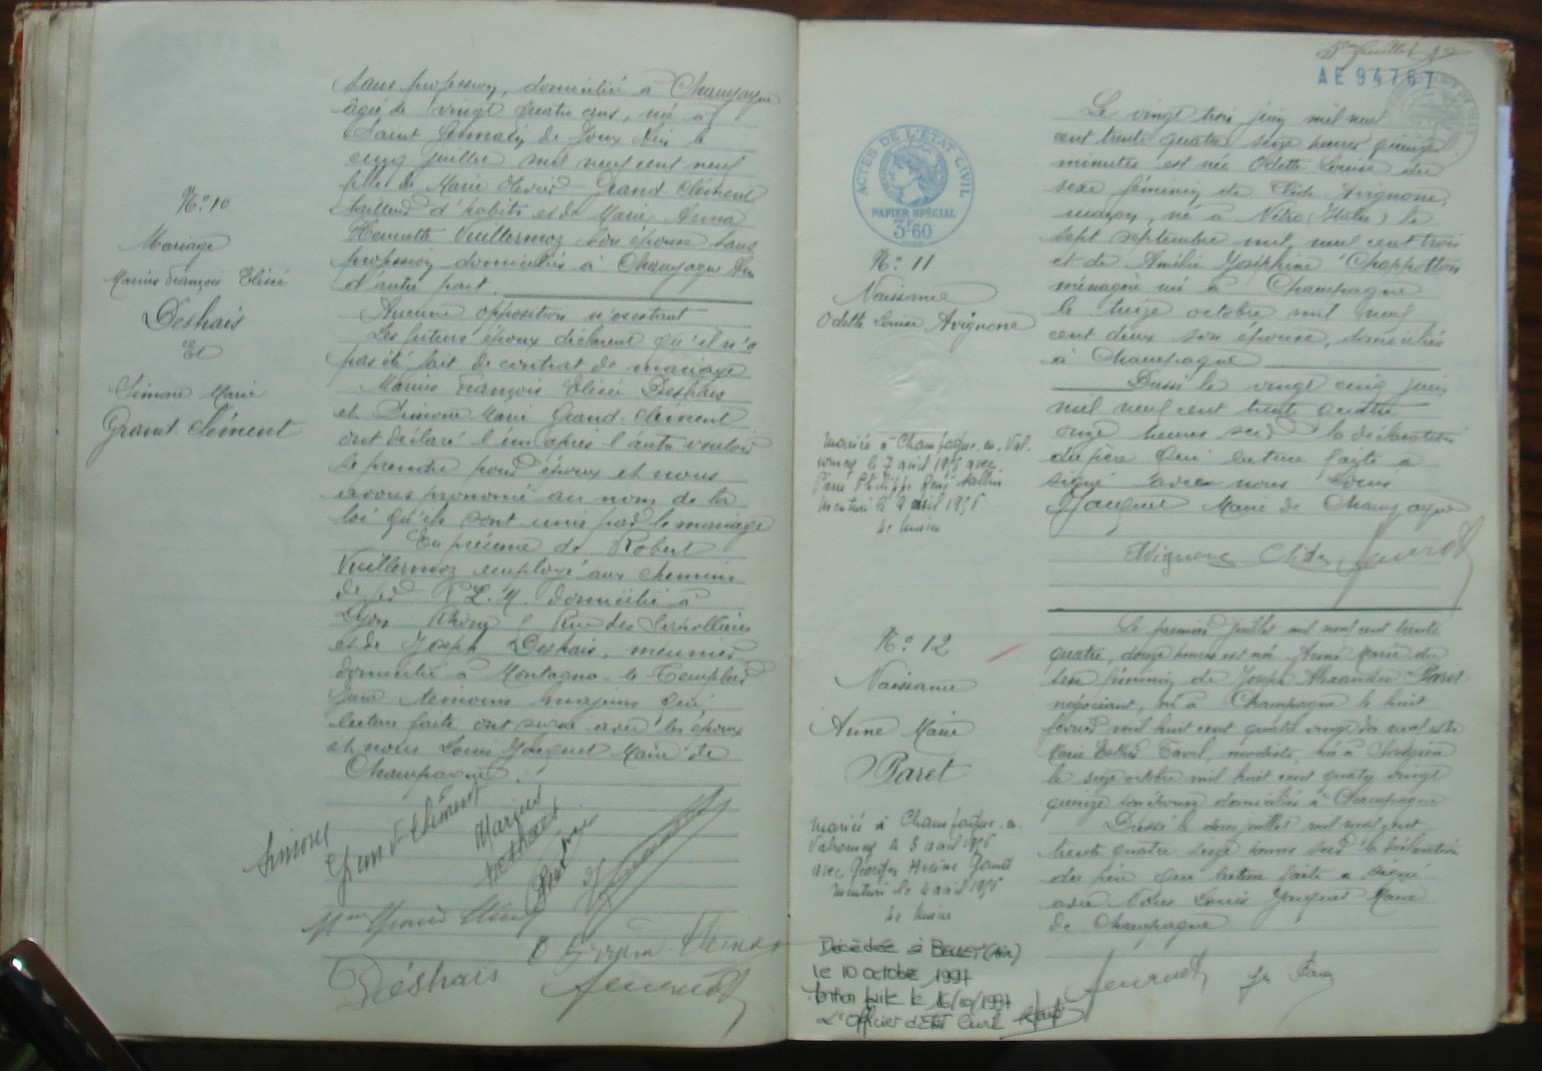 N° 10
Mariage
Marius François Elisée
Deshais
Et
Simone Marie
Grand-Clément
sans profession, domiciliée à Champagne
âgée de vingt quatre ans, née à
Saint Germain de Joux Ain le
cinq juillet mil neuf cent neuf
fille de Marie Grand Clément
tailleur d'habits et de Marie Anna
Vuillermoz son épouse sans
profession domiciliés à Champagne Ain
d'autre part.
Aucune opposition n'existant
Les futurs époux déclarent qu'il n'a
pas été fait de contrat de mariage
Marius François Elisée Deshais
et Simone Marie Grand-Clément
ont déclaré l'un après l'autre vouloir
se prendre pour époux et nous
avons prononcé au nom de la
loi qu'ils sont unis par le mariage
En présence de Robert
Vuillermoz employé aux chemins
de fer P.L.M. domicilié à
Lyon Rhône Rue des
et de Joseph Deshais, meunier
domicilié à Montagna-le-Templier
Jura témoins majeurs qui
lecture faite ont signé avec les époux
et nous Louis Jacquet Maire de
Champagne
Simone
Grand-Clément
Marius
Deshais
Déshais
5me feuillet
AE 94767
ACTES DE L'ÉTAT CIVIL
PAPIER SPÉCIAL
3F60
N° 11
Naissance
Odette Louise Avignone
Le vingt trois juin mil neuf
cent trente quatre seize heures quinze
minutes est née Odette Louise du
sexe féminin de Avignone
maçon, né à (Italie) le
sept septembre mil neuf cent trois
et de Amélie Joséphine
ménagère née à Champagne
le treize octobre mil neuf
cent deux son épouse, domiciliés
à Champagne
Dressé le vingt cinq juin
mil neuf cent trente quatre
onze heures sur la déclaration
du père qui lecture faite a
signé avec nous Louis
Jacquet Maire de Champagne
Avignone
mariée à Champagne-en-Val-
romey le 7 avril 1956 avec
Pierre Philippe René
mention le 9 avril 1956
Le Maire
N° 12
Naissance
Anne Marie
Paret
Le premier juillet mil neuf cent trente
quatre, douze heures est née Anne Marie du
sexe féminin de Joseph Alexandre Paret
négociant, né à Champagne le huit
février mil huit cent quatre vingt dix neuf et de
Marie modiste, née à
le seize octobre mil huit cent quatre vingt
quinze son épouse domiciliés à Champagne
Dressé le deux juillet mil neuf cent
trente quatre seize heures sur la déclaration
du père qui lecture faite a signé
avec Nous Louis Jacquet Maire
de Champagne
mariée à Champagne-en-
Valromey le 3 avril 1956
avec Georges
mention le 4 avril 1956
Le Maire
Décédée à Belley (Ain)
le 10 octobre 1997
mention faite le 16/10/1997
L'Officier d'Etat Civil